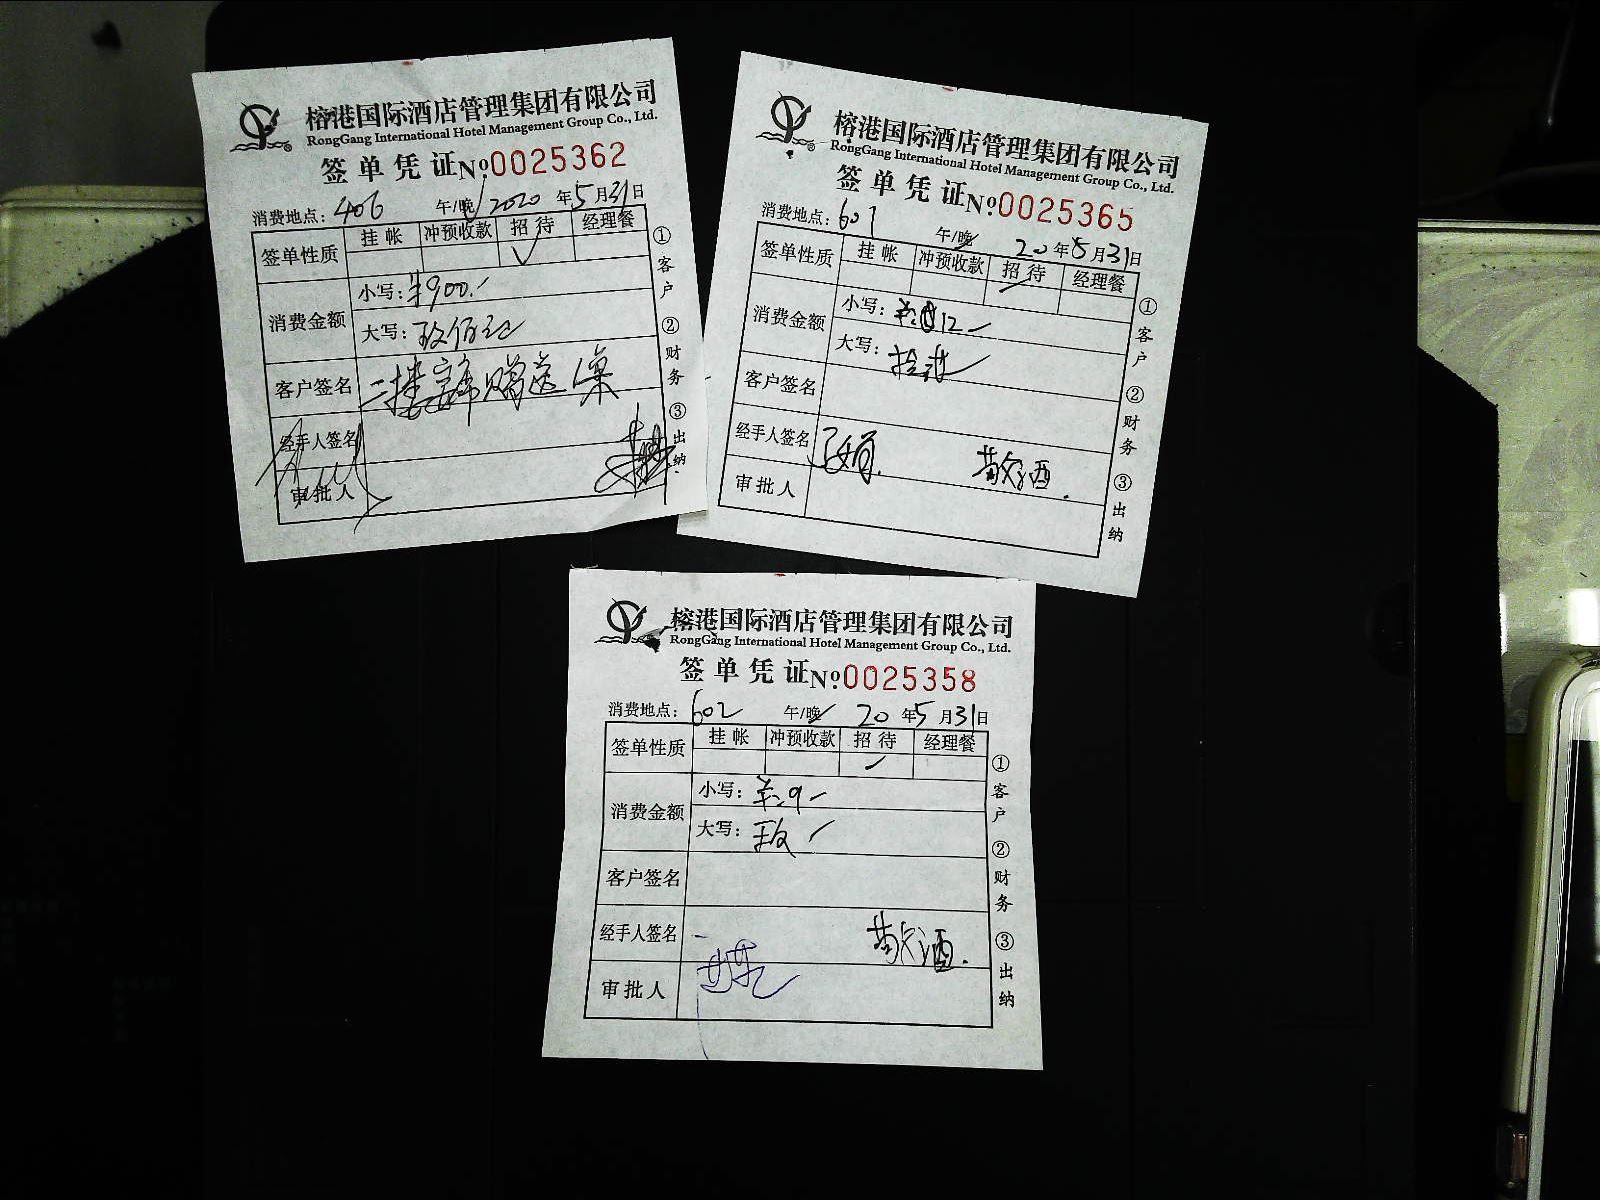 榕港国际酒店管理集团有限公司
RongGang International Hotel Management Group Co., Ltd.
签单凭证 №0025362
消费地点：406 午/晚 2020年5月31日
签单性质 挂帐 冲预收款 招待 经理餐
消费金额 小写：¥900.-
大写：玖佰元
客户签名 二楼 赠送
经手人签名
审批人
①客户 ②财务 ③出纳
榕港国际酒店管理集团有限公司
RongGang International Hotel Management Group Co., Ltd.
签单凭证 №0025365
消费地点：607 午/晚 20年5月31日
签单性质 挂帐 冲预收款 招待 经理餐
消费金额 小写：
大写：
客户签名
经手人签名 敬酒.
审批人
①客户 ②财务 ③出纳
榕港国际酒店管理集团有限公司
RongGang International Hotel Management Group Co., Ltd.
签单凭证 №0025358
消费地点：602 午/晚 20年5月31日
签单性质 挂帐 冲预收款 招待 经理餐
消费金额 小写：
大写：玖
客户签名
经手人签名 敬酒.
审批人
①客户 ②财务 ③出纳